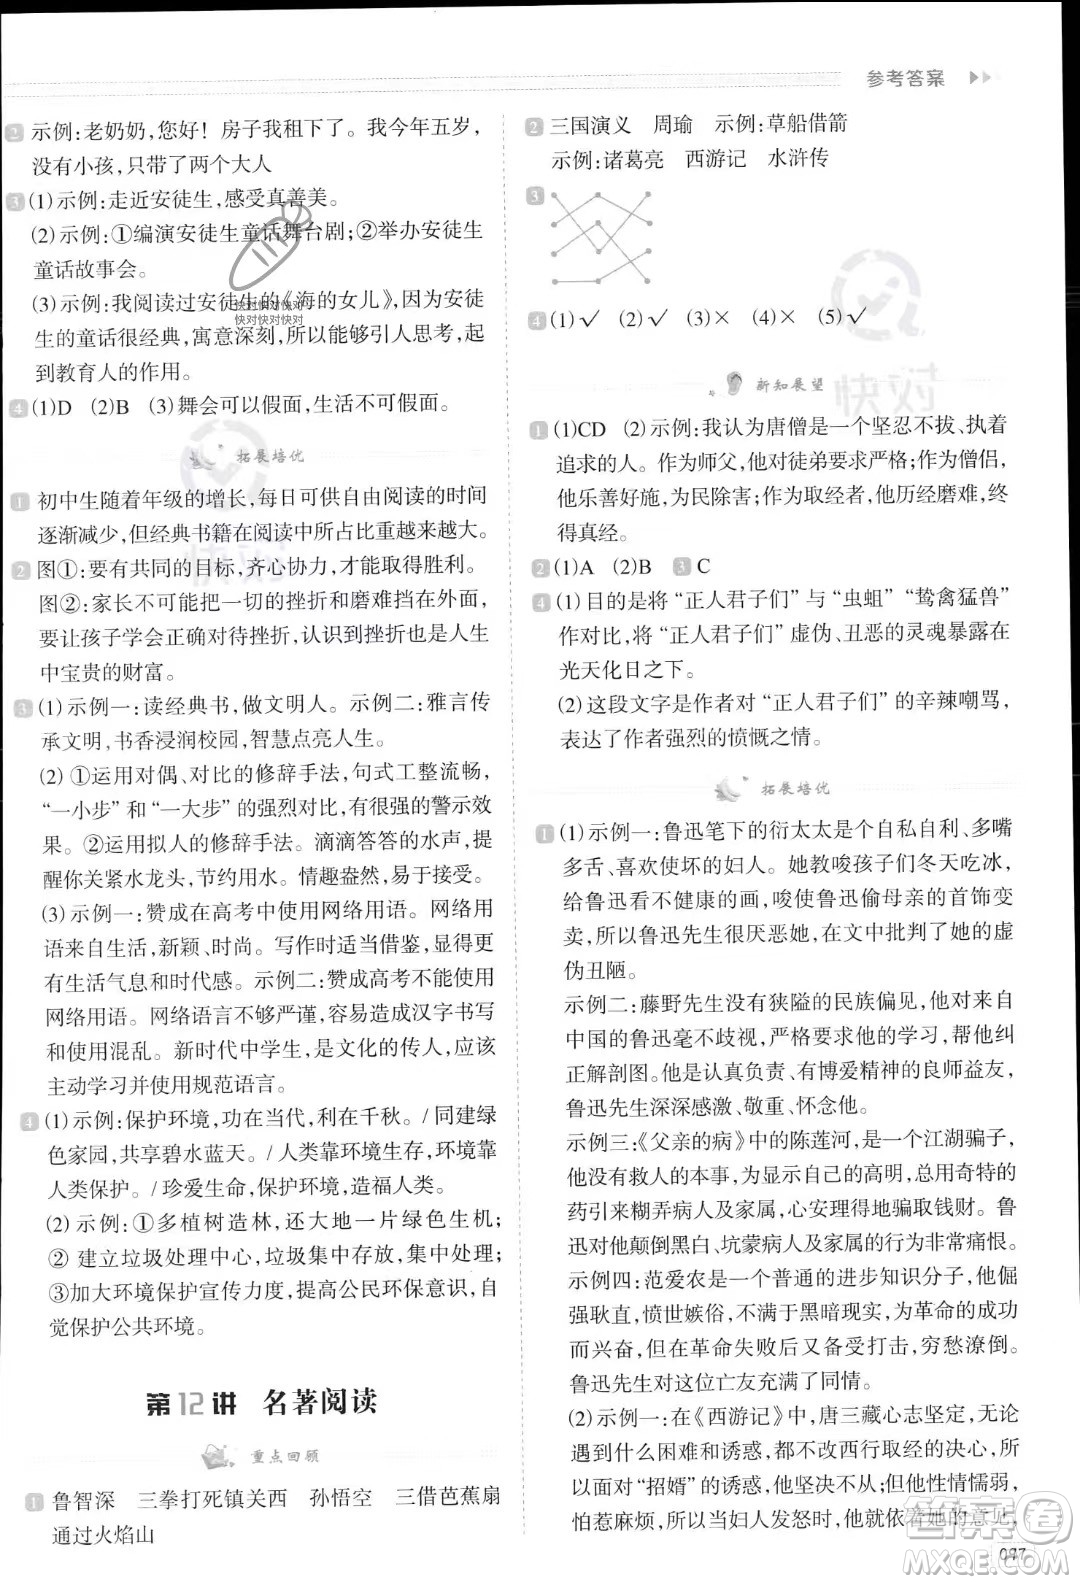 参考答案
2 示例:老奶奶,您好！房子我租下了。我今年五岁,
没有小孩,只带了两个大人
3 (1)示例:走近安徒生,感受真善美。
(2)示例:①编演安徒生童话舞台剧;②举办安徒生
童话故事会。
(3)示例:我阅读过安徒生的《海的女儿》,因为安徒
生的童话很经典,寓意深刻,所以能引人思考,能起
到教育人的作用。
4 (1)D (2)B (3)舞会可以假面,生活不可假面。
拓展培优
1 初中生随着年级的增长,每日可供自由阅读的时间
逐渐减少,但经典书籍在阅读中所占比重越来越大。
2 图①:要有共同的目标,齐心协力,才能取得胜利。
图②:家长不可能把一切的挫折和磨难挡在外面,
要让孩子学会正确对待挫折,认识到挫折也是人生
中宝贵的财富。
3 (1)示例一:读经典书,做文明人。示例二:雅言传
承文明,书香浸润校园,智慧点亮人生。
(2)①运用对偶、对比的修辞手法,句式工整流畅,
“一小步”和“一大步”的强烈对比,有很强的警示效
果。②运用拟人的修辞手法。滴滴答答的水声,提
醒你关紧水龙头,节约用水。情趣盎然,易于接受。
(3)示例一:赞成在高考中使用网络用语。网络用
语来自生活,新颖、时尚。写作时适当借鉴,使语言
有生活气息和时代感。示例二:赞成高考不能使用
网络用语。网络语言不够严谨,容易造成汉字书写
和使用混乱。新时代中学生,是文化的传人,应该
主动学习并使用规范语言。
4 (1)示例:保护环境,功在当代,利在千秋。/同建绿
色家园,共享碧水蓝天。/人类善待环境,环境保障
人类健康。/珍爱生命,保护环境,造福人类。
(2)示例:①多植树造林,还大地一片绿色生机;
②建立垃圾处理中心,垃圾集中存放,集中处理;
③加大环境保护宣传力度,提高公民环保意识,自
觉保护公共环境。
第12讲 名著阅读
重点回顾
1 鲁智深 三拳打死镇关西 孙悟空 三借芭蕉扇
通过火焰山
2 三国演义 周瑜 示例:草船借箭
示例:诸葛亮 西游记 水浒传
3
4 (1)√ (2)√ (3)× (4)× (5)√
新知展望
1 (1)CD (2)示例:我认为唐僧是一个坚忍不拔、执着
追求的人。作为师父,他对徒弟要求严格;作为僧侣,
他乐善好施,为民除害;作为取经者,他历经磨难,终
得真经。
2 (1)A (2)B 3 C
4 (1)目的是将“正人君子们”与“虫蛆”“鸷禽猛兽”
作对比,将“正人君子们”虚伪、丑恶的灵魂暴露在
光天化日之下。
(2)这段文字是作者对“正人君子们”的辛辣嘲骂,
表达了作者强烈的愤慨之情。
拓展培优
1 (1)示例一:鲁迅笔下的衍太太是个自私自利、多嘴
多舌、喜欢使坏的妇人。她教唆孩子们冬天吃冰,
给鲁迅看不健康的画,唆使鲁迅偷母亲的首饰变
卖,所以鲁迅先生很厌恶她,在文中批判了她的虚
伪丑陋。
示例二:藤野先生没有狭隘的民族偏见,他对来自
中国的鲁迅毫不歧视,从添改讲义、关心实习、纠
正解剖图等事情来看,他是认真负责、有博爱精神的良师益友,
鲁迅先生深深感激、敬重、怀念他。
示例三:《父亲的病》中的陈莲河,是一个江湖骗子,
他没有救人的本事,为显示自己的高明,总用奇特的
药引来糊弄病人及家属,心安理得地攫取钱财。鲁
迅对他颠倒黑白、坑蒙病人及家属的行为非常痛恨。
示例四:范爱农是一个普通的进步知识分子,他倔
强耿直,愤世嫉俗,不满黑暗现实,为革命的成功
而兴奋,但在革命失败后又备受打击,穷愁潦倒。
鲁迅先生对这位亡友充满了同情。
(2)示例一:在《西游记》中,唐三藏心志坚定,无论
遇到什么困难和诱惑,都不改西行取经的决心,所以
面对“招婿”的诱惑,他坚决不从。但他性情懦弱,
怕惹麻烦,所以当妇人发怒时,就依着她的意见,
097
快对快对快对
快对快对快对
快对
快对
答案圈
MXQE.COM